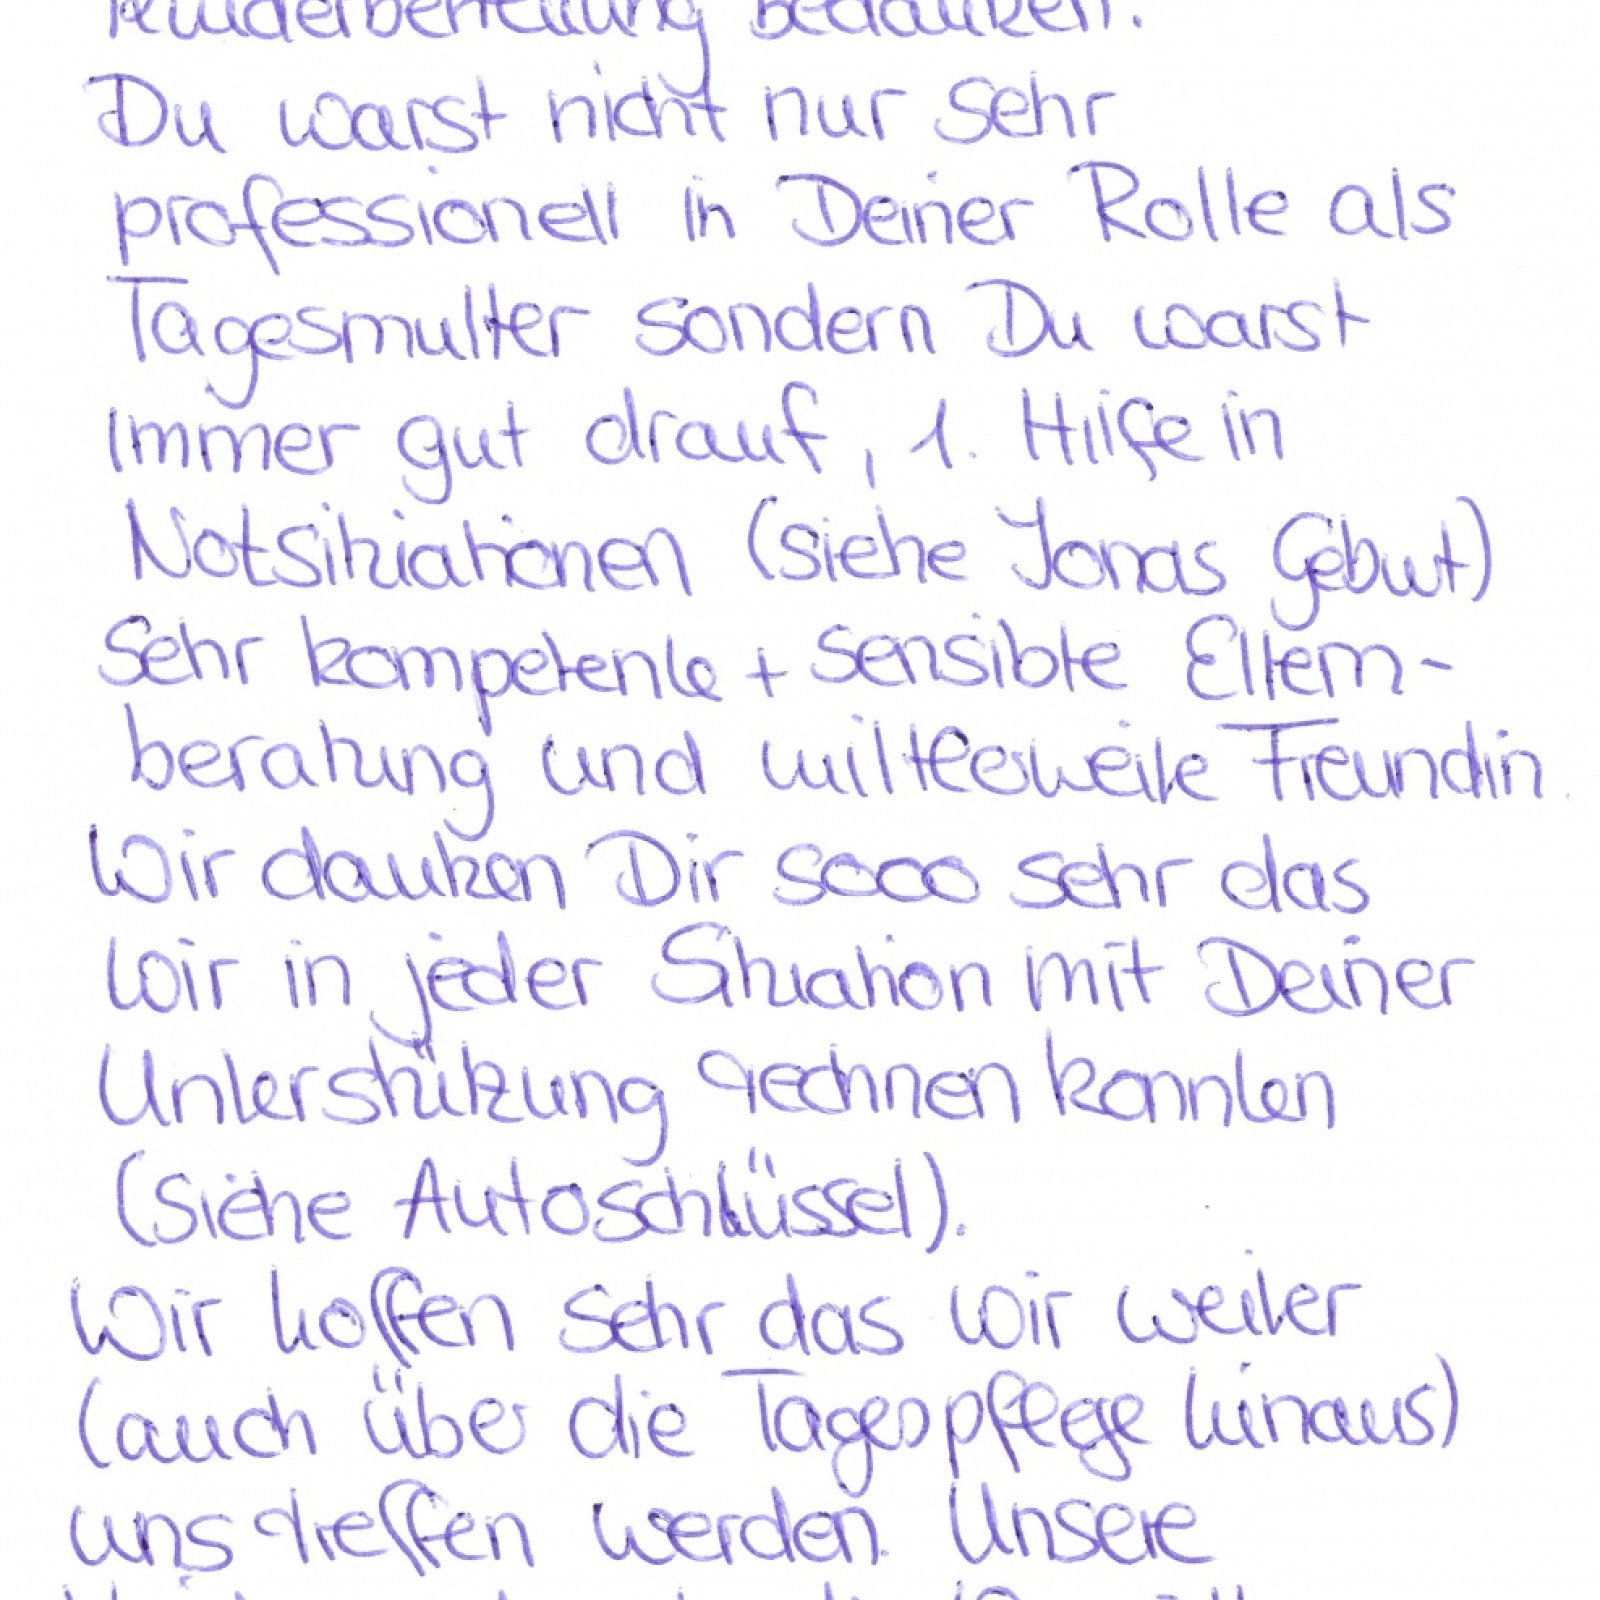 bedanken.
Du warst nicht nur sehr
professionell in Deiner Rolle als
Tagesmutter sondern Du warst
immer gut drauf, 1. Hilfe in
Notsituationen (siehe Jonas Geburt)
Sehr kompetente + sensible Eltern-
beratung und mittlerweile Freundin.
Wir danken Dir sooo sehr das
wir in jeder Situation mit Deiner
Unterstützung rechnen konnten
(siehe Autoschlüssel).
Wir hoffen sehr das wir weiter
(auch über die Tagespflege hinaus)
uns treffen werden. Unsere